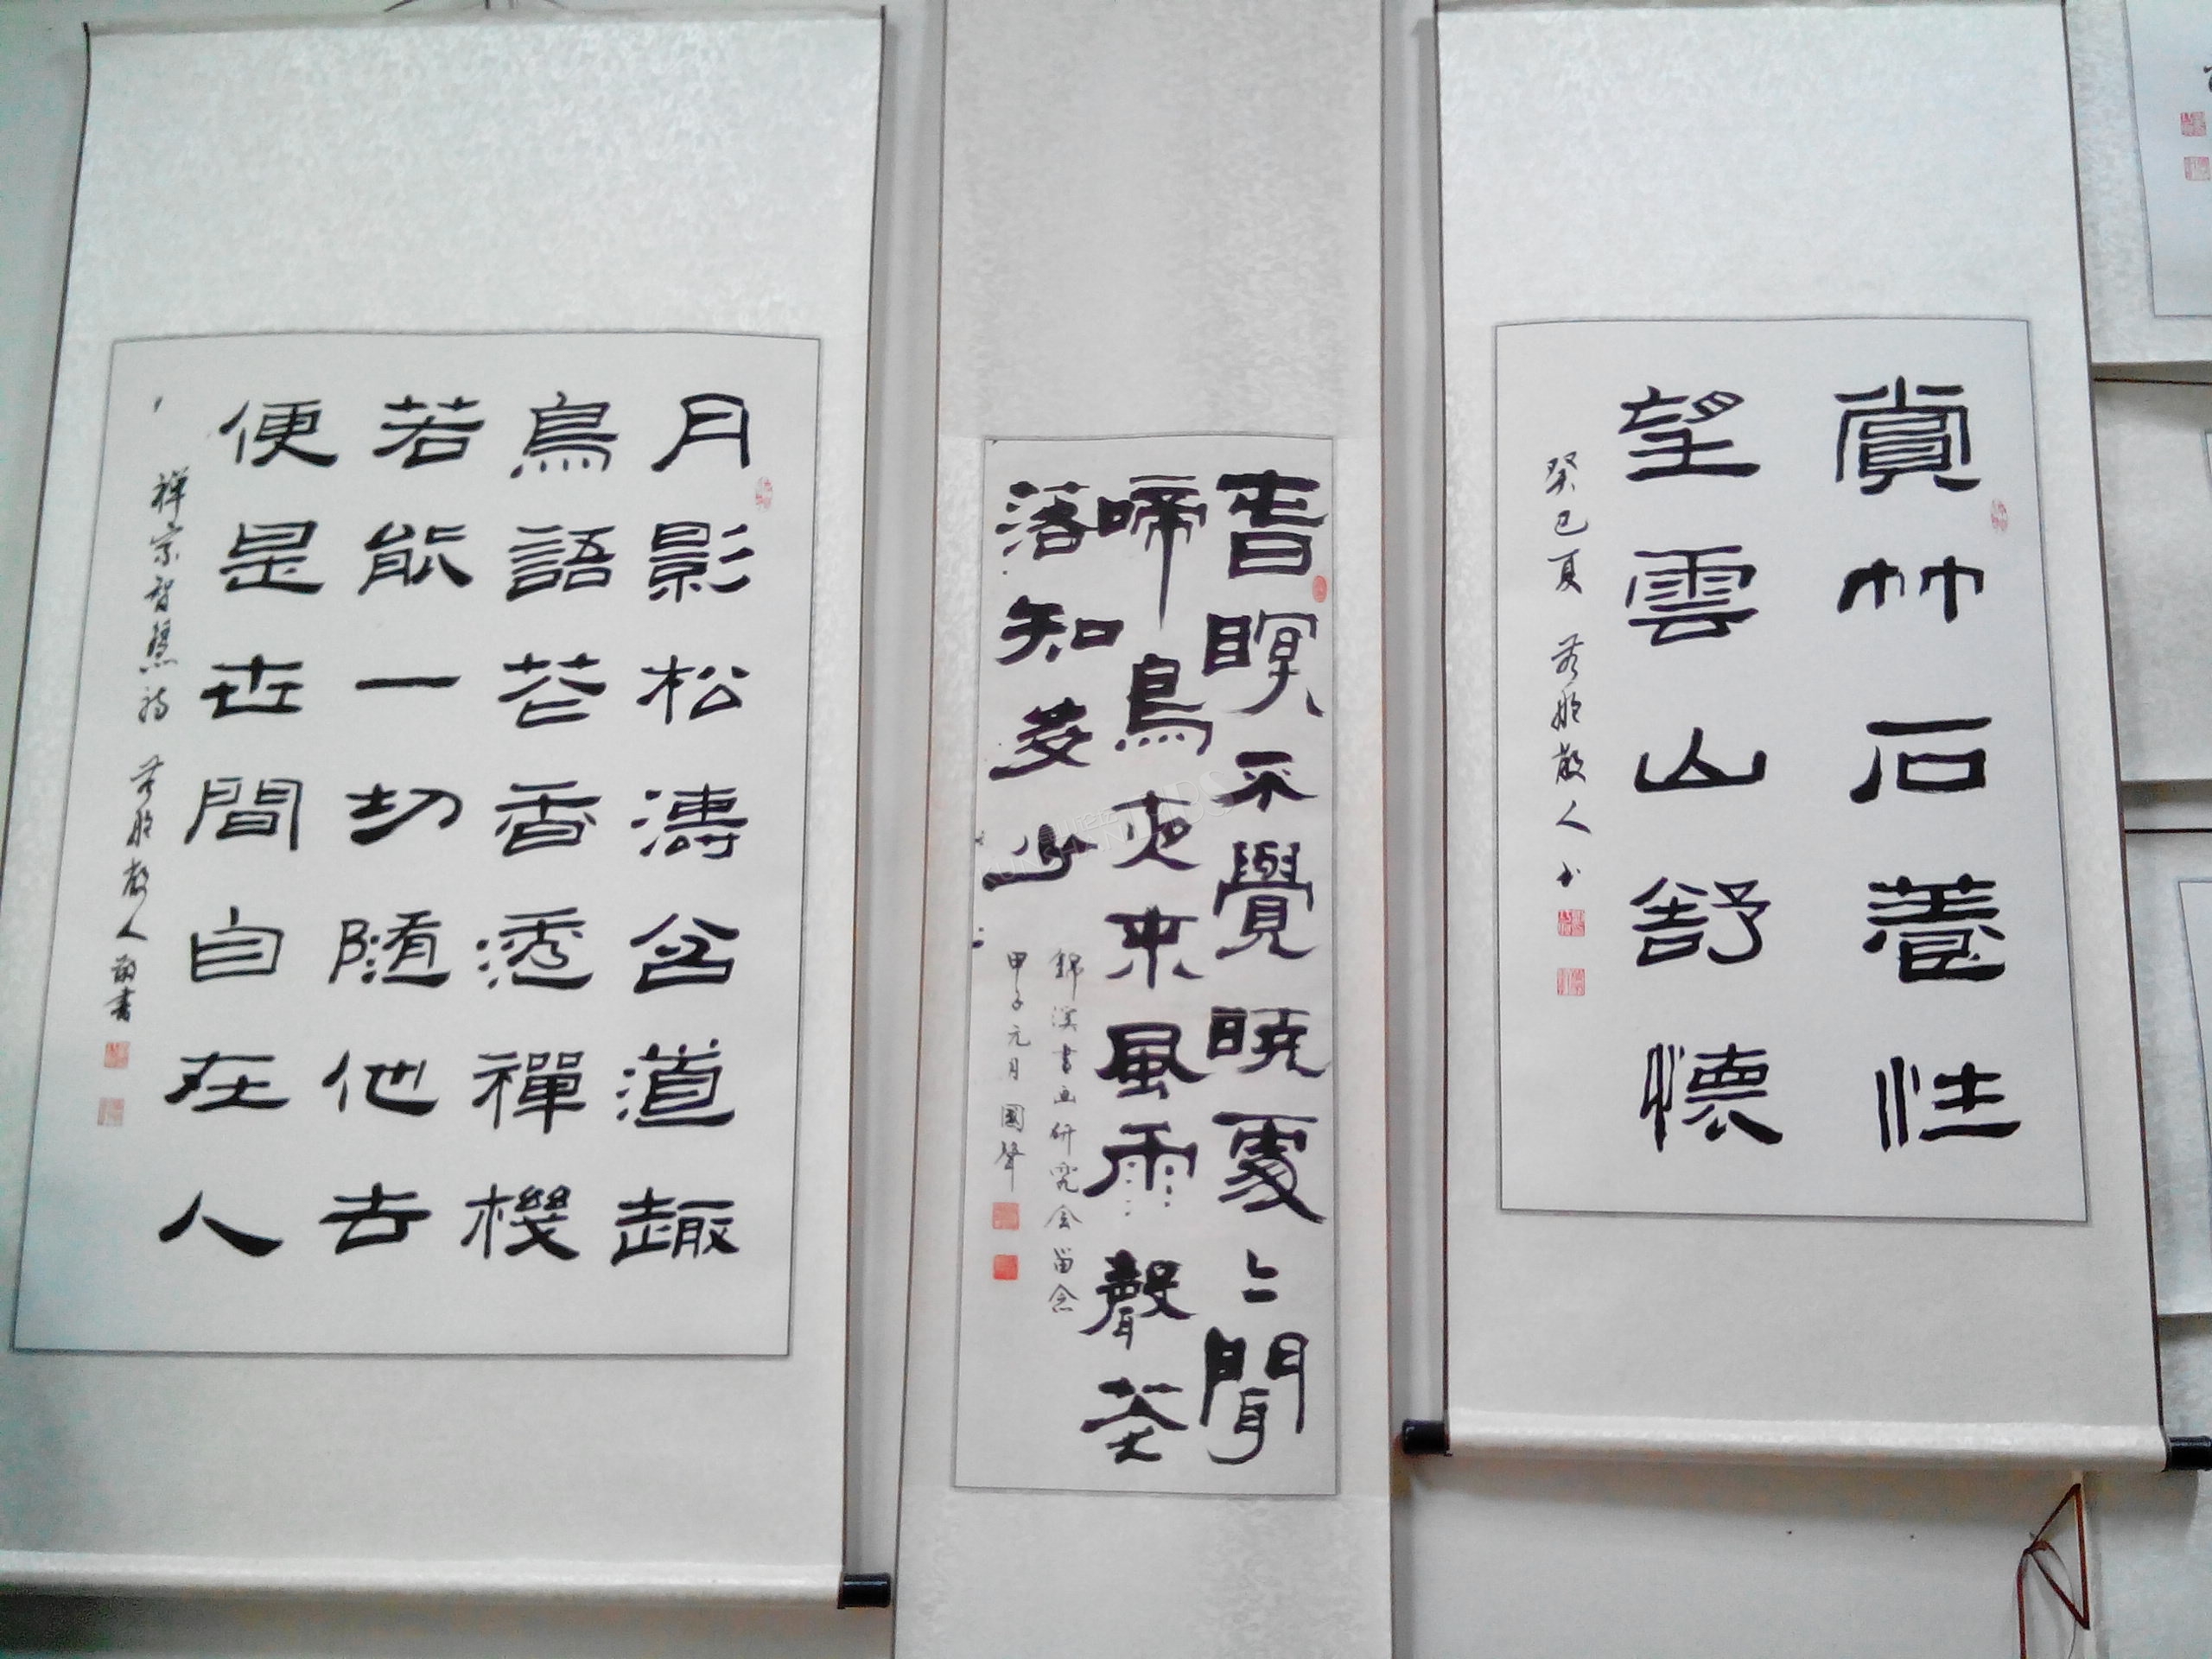 賞竹石養性
望雲山舒懷
癸巳夏 散人书
春瞑不覺曉處〻聞
啼鳥夜来風雨聲花
落知多少
錦溪書画研究会留念
甲子元月 國聲
月影松濤含道趣
鳥語花香透禪機
若能一切随他去
便是世間自在人
禅宗智慧詩 散人敬書